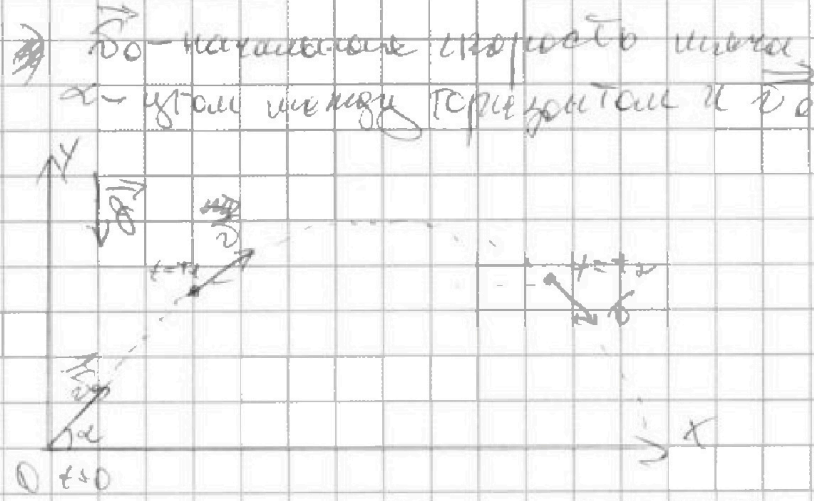 v₀ - начальная скорость мяча
α - угол между горизонтом и v₀
Y
g
v
t=t₁
t=t₂
v
v₀
α
X
0 t=0